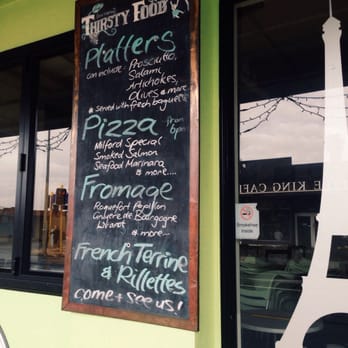 THIRSTY FOOD
Platters
can include: Prosciutto,
Salami,
Artichokes,
Olives & more
* Served with fresh baguette
Pizza from
6pm
Milford Special
Smoked Salmon
Seafood Marinara
& more....
Fromage
Roquefort Papillon
Gruyere de Bourgogne
& more...
French Terrine
& Rillettes
come + see us!
KING CAFE
Smokefree
inside